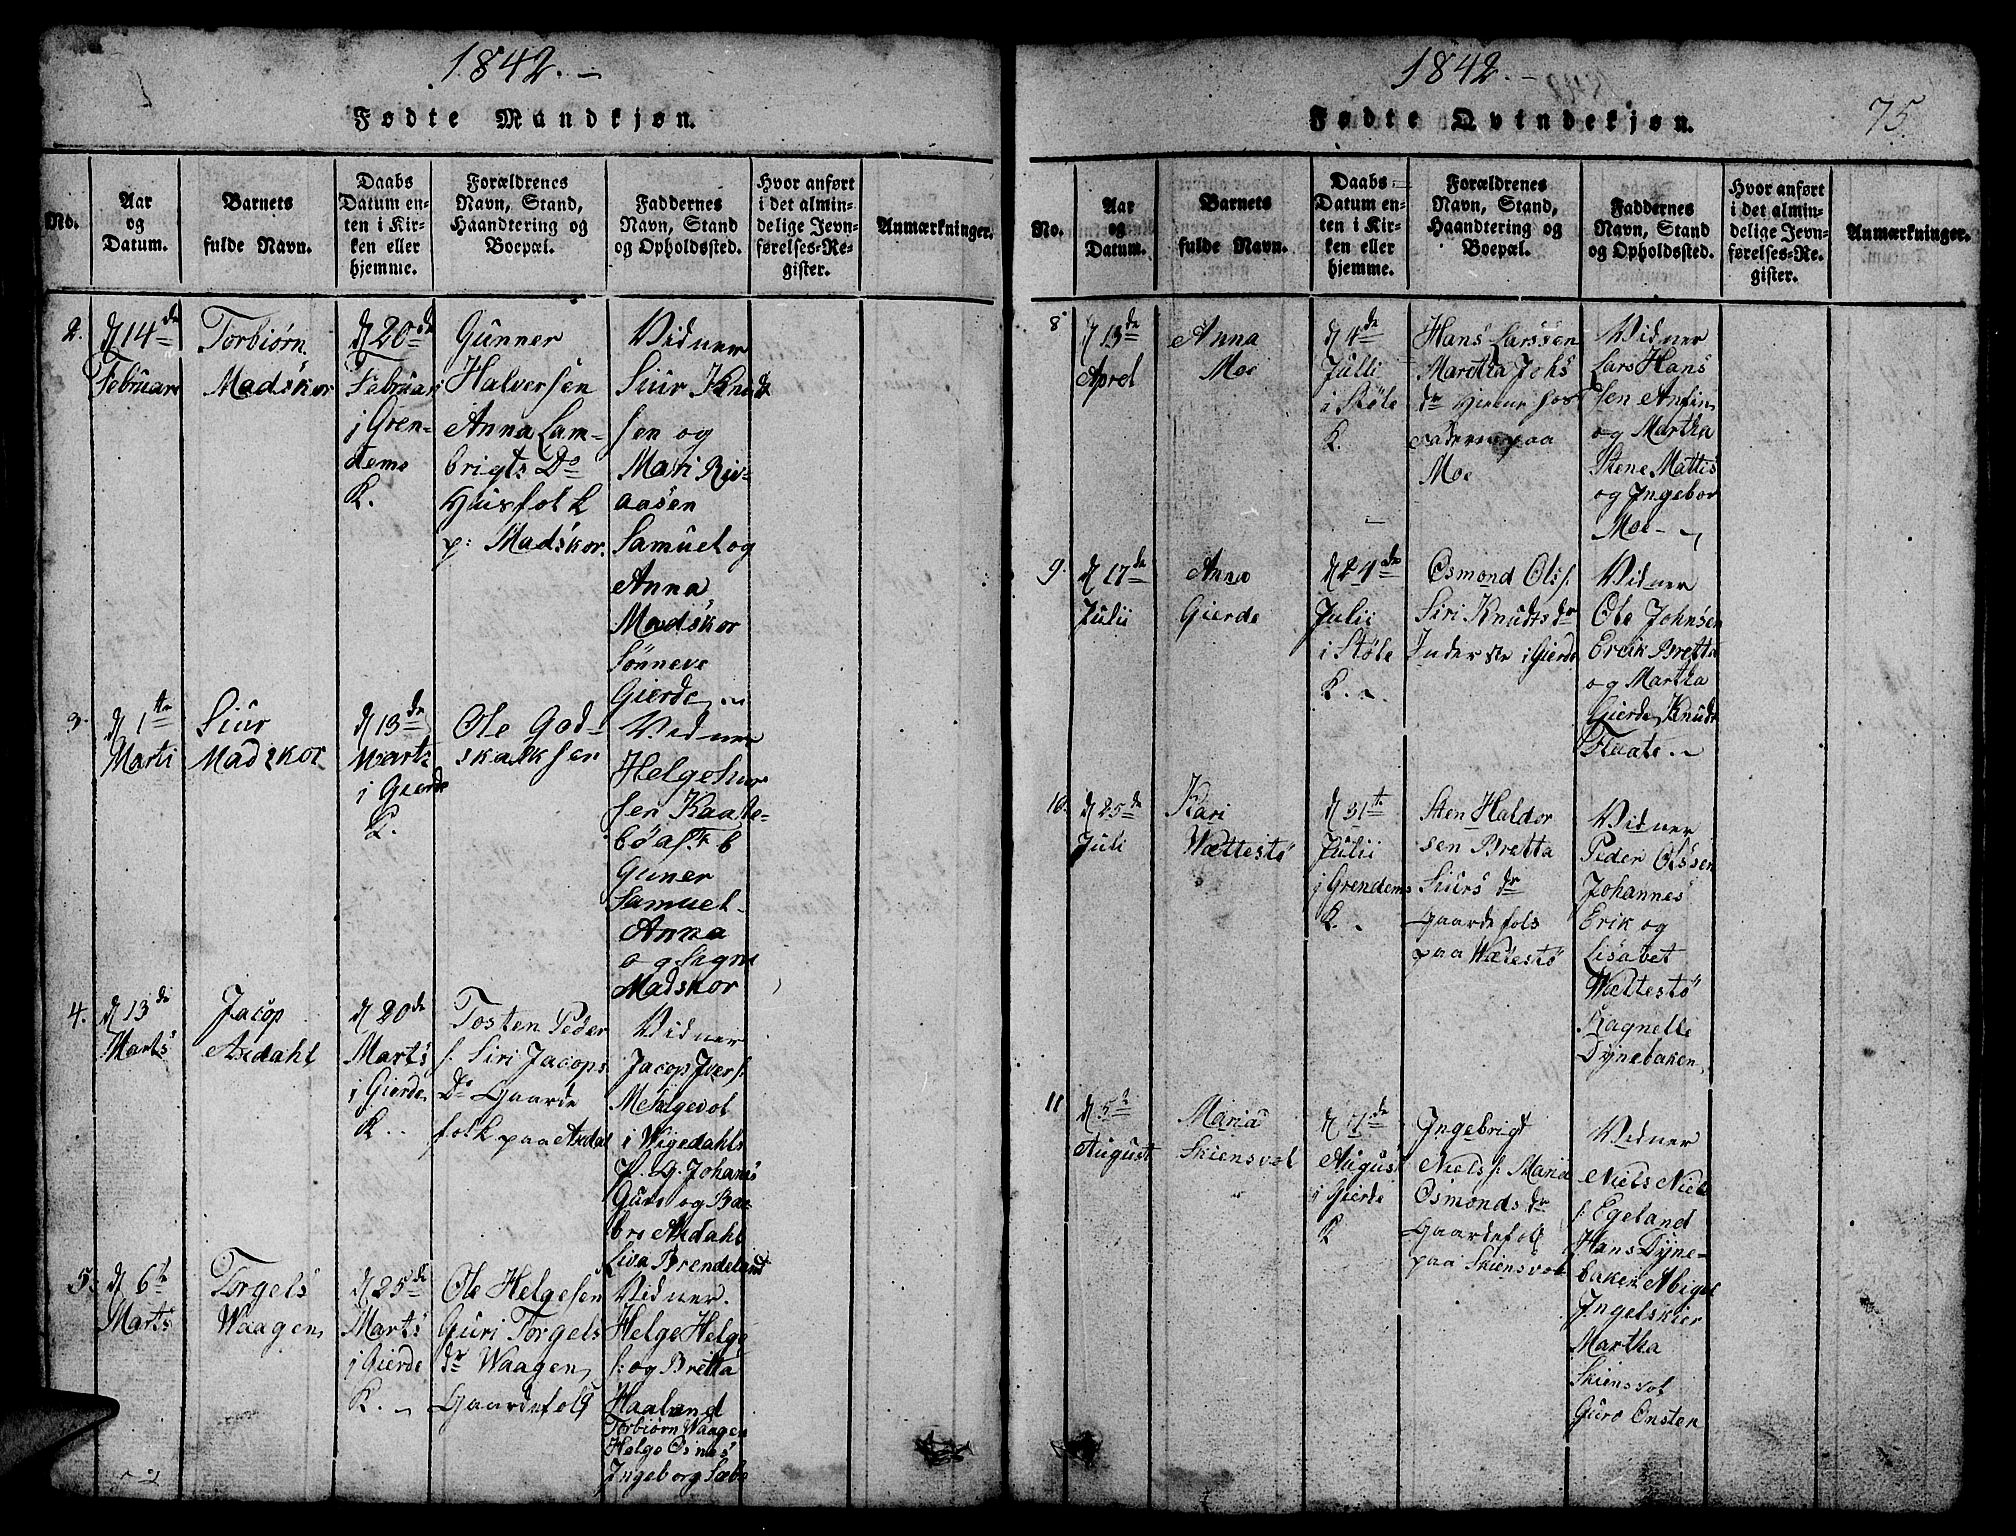 1842. –
Fødte Mandkjøn.
No.
Aar
og
Datum.
Barnets
fulde Navn.
Daabs
Datum en-
ten i Kir-
ken eller
hjemme.
Forældrenes
Navn, Stand,
Haandtering og
Boepæl.
Faddernes
Navn, Stand
og Opholdssted.
Hvor anført
i det almin-
delige Jevn-
førelses-Re-
gister.
Anmærkninger.
2.
d 14de
Februari
Torbiørn
Madskor
d 20de
Februari
j Gren-
dems
K.
Gunner
Halversen
Anna Lam-
brigts Do
Huusfolk
p: Madskor.
Vidner
Siur Knud
sen og
Mari Riv-
aasen
Samuel og
Anna
Madskor
Sønneve
Gierde
3.
d 1te
Marti
Siur
Madskor
d 13de
Marts
i Gierde
K.
Ole God-
skalksen
Vidner
Helge Siur
sen Kaate-
bø
Guner
Samuel
Anna
og Signe
Madskor
4.
d 13de
Marts
Jacop
Axdahl
d 20de
Marts
i Gierde
K.
Tosten Peder
s. Siri Jacops
Do Gaarde
folk paa Axdal
Vidner
Jacop Iver s.
Mehlgevol
i Vigedahls
P. G. Johanes
Guro og Bar-
bro Axdahl
Siva Brendeland
5.
d 6te
Marts
Torgels
Waagen
d 25de
Marts
j Gierde
K.
Ole Helgesen
Guri Torgels
dr Waagen
Gaardefolk
Vidner.
Helge Helge
s: og Britta
Haaland
Torbiørn Waagen
Helge Osnes
Ingeborg Sæbø
1842. –
75.
Fødte Qvindekjøn.
No.
Aar
og
Datum.
Barnets
fulde Navn.
Daabs
Datum en-
ten i Kir-
ken eller
hjemme.
Forældrenes
Navn, Stand,
Haandtering og
Boepæl.
Faddernes
Navn, Stand
og Opholdssted.
Hvor anført
i det almin-
delige Jevn-
førelses-Re-
gister.
Anmærkninger.
8
d 13de
Aprel
Anna
Moe
d 4de
Julli
i Støle
K.
Hans Larssen
Martha Johs
dr
paa
Moe
Vidner
Lars Hans
sen Anfin
og Martha
Stene Mattis
og Ingebor
Moe
9.
d 17de
Julii
Anna
Gierde
d 24de
Julii
i Støle
K.
Osmond Ols s.
Siri Knudts dr
Inderste i Gierde
Vidner
Ole Johnsen
Erik Bretta
og Martha
Gierde Knudt
Flaate
10.
d 25de
Juli
Kari
Wættestø
d 31te
Julii
j Grendems
K.
Sten Haldor
sen Bretta
Siurs dr
Gaardefols
paa Wætestø
Vidner
Peder Olssen
Johannes
Erik og
Lisabet
Wættestø
Ragnelle
Dynebaken
11
d 5te
August
Maria
Skiensvol
d 7de
August
i Gierde
K
Ingebrigt
Niels s: Maria
Osmonds dr
Gaardefolk
paa Skiensvol
Vidner
Niels Niels
s: Egeland
Hans Dyne-
baken Abigel
Ingelskier
Martha
Skiensvol
Guro Onsten